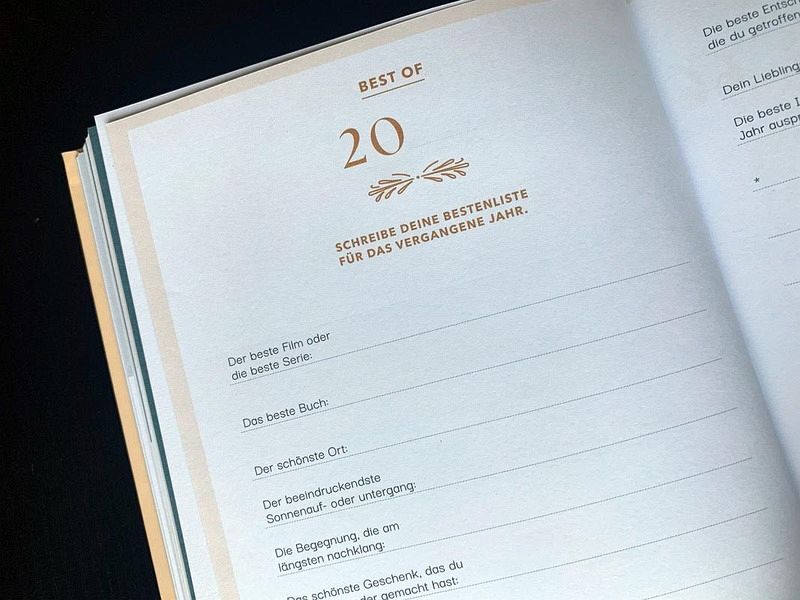 BEST OF
20
SCHREIBE DEINE BESTENLISTE
FÜR DAS VERGANGENE JAHR.
Der beste Film oder
die beste Serie:
Das beste Buch:
Der schönste Ort:
Der beeindruckendste
Sonnenauf- oder untergang:
Die Begegnung, die am
längsten nachklang:
Das schönste Geschenk, das du
gemacht hast:
Die beste
die du
Dein
Die beste
Jahr
*